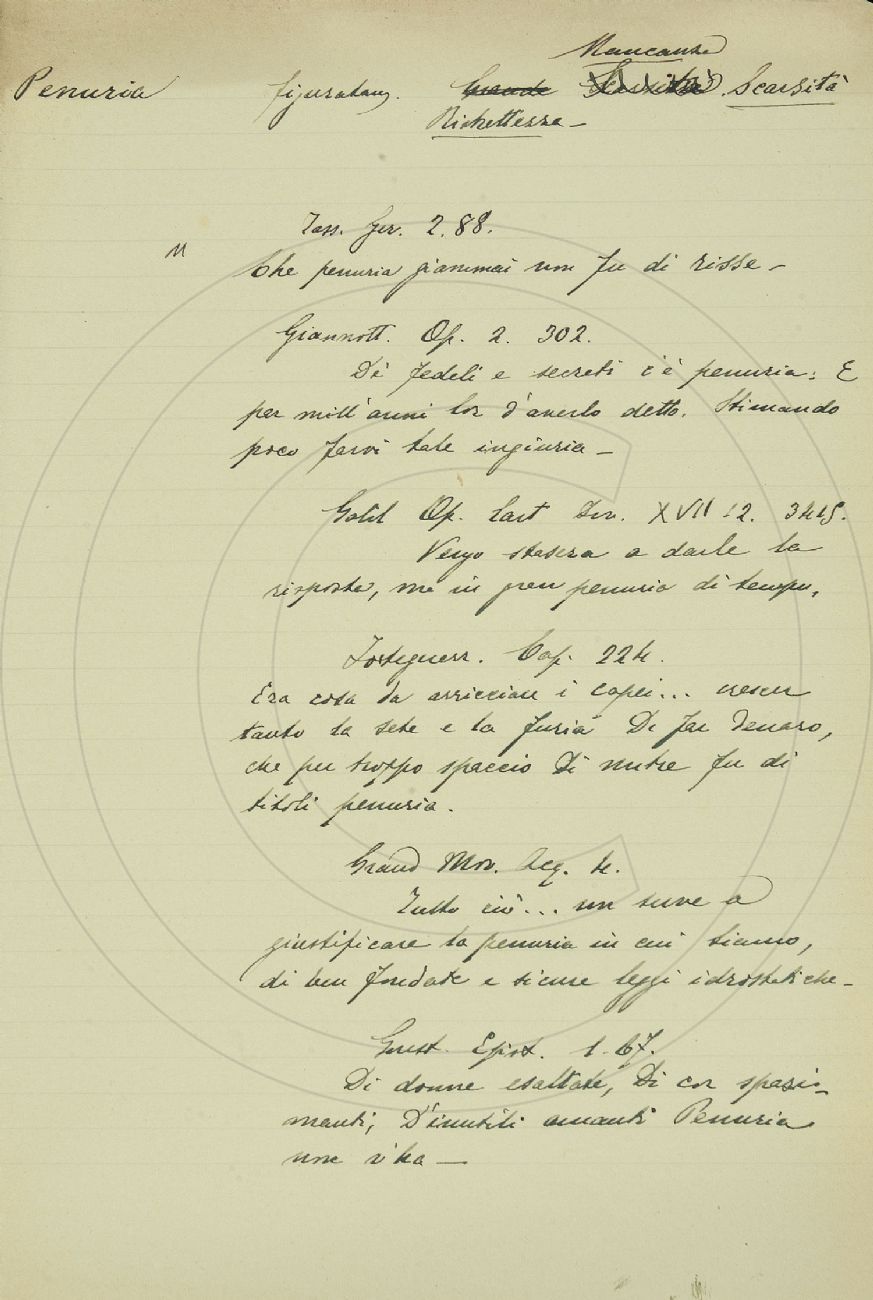 Mancanza
Penuria figuratam. Grande Scarsità
Ristrettezza –
Tass. Ger. 2. 88.
Che penuria giammai non fu di risse –
Giannott. Op. 2. 302.
Di fedeli e secreti c'è penuria: E
per mill'anni lor d'averlo detto. Stimando
poco farvi tale ingiuria –
Galil Op. Lart XVII 12.
Vengo stasera a darle la
risposta, ma in gran penuria di tempo,
Forteguerr. Cap. 224.
Era cosa da arricciare i capei... crescer
tanto la sete e la furia Di far denaro,
che per troppo spaccio Di mitre fu di
titoli penuria.
Grand Mov. Acq. 4.
Tutto ciò... non serve a
giustificare la penuria in cui siamo,
di ben fondate e sicure leggi idrostatiche –
Giust. Epist. 1. 67.
Di donne esaltate, Di cor spasi-
manti, D'inutili amanti Penuria
non v'ha –